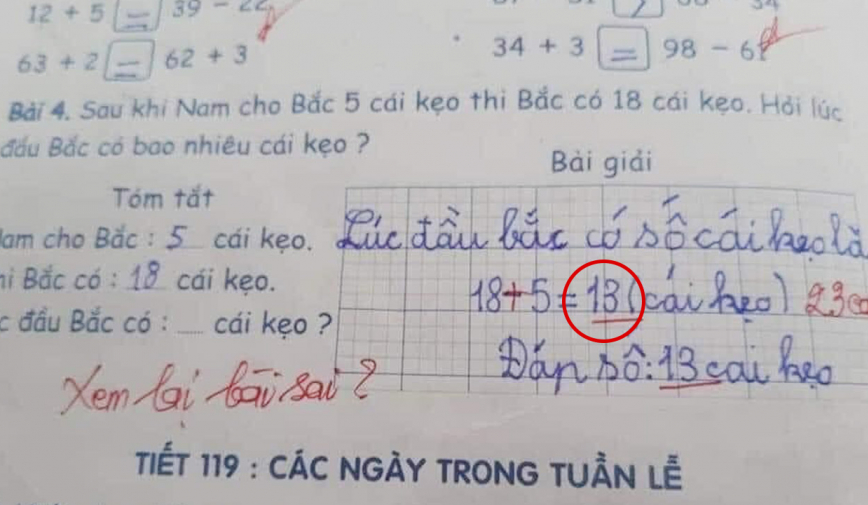 12 + 5 = 39 - 22
63 + 2 = 62 + 3
34 + 3 = 98 - 61
Bài 4. Sau khi Nam cho Bắc 5 cái kẹo thì Bắc có 18 cái kẹo. Hỏi lúc
đầu Bắc có bao nhiêu cái kẹo ?
Bài giải
Tóm tắt
Nam cho Bắc : 5 cái kẹo.
Lúc đầu bắc có số cái kẹo là
Bắc có : 18 cái kẹo.
18+5 = 13 (cái kẹo) 23
đầu Bắc có : .... cái kẹo ?
Đáp số: 13 cai kẹo
Xem lại bài sai ?
TIẾT 119 : CÁC NGÀY TRONG TUẦN LỄ